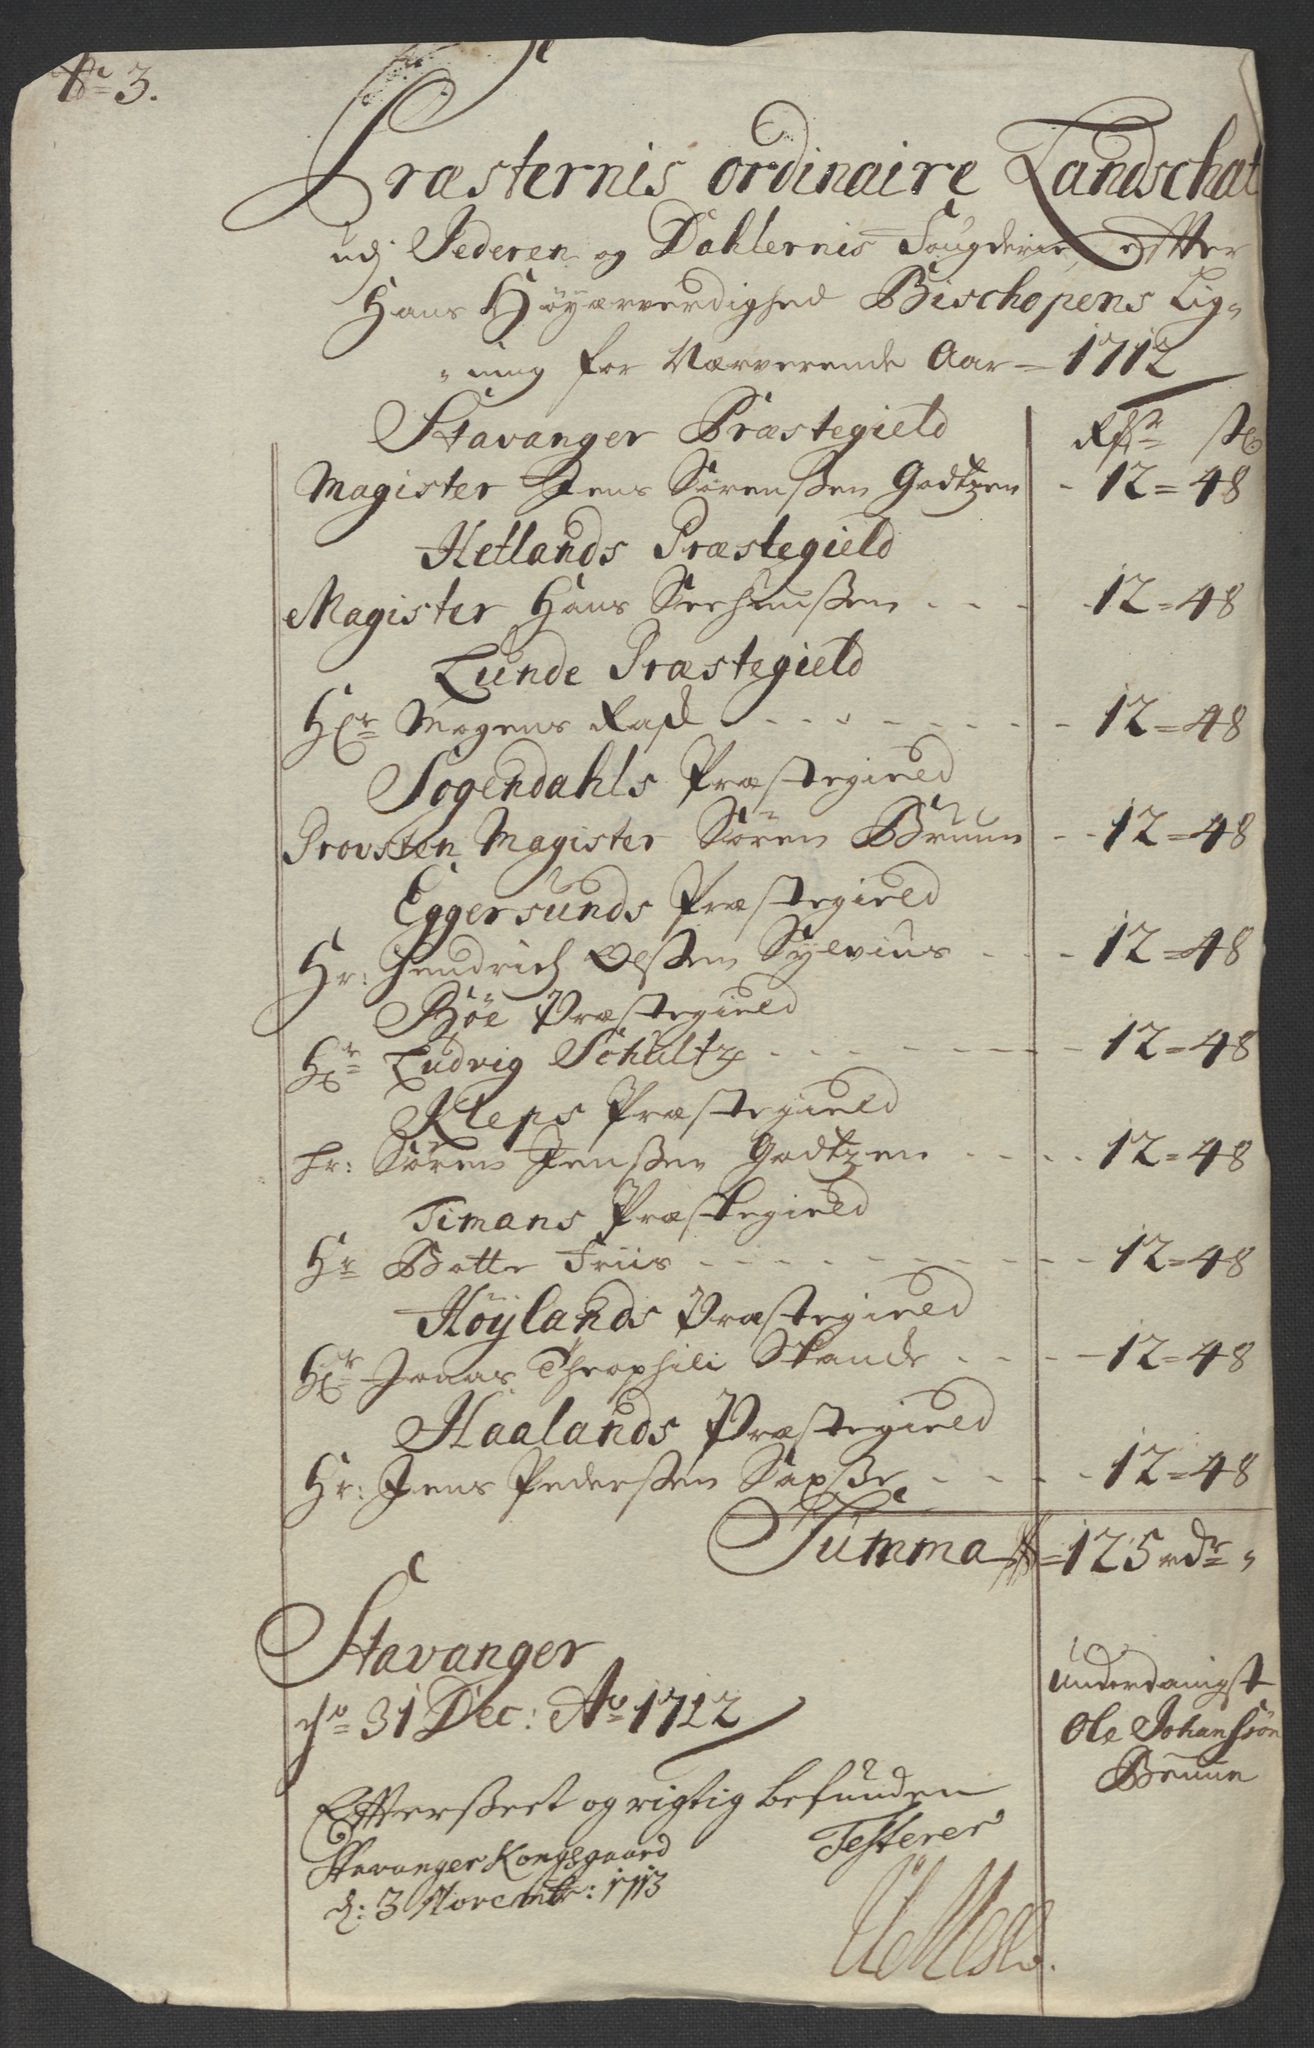 No 3.
Præsternis ordinaire Landschat
udj Jederen og Dahlernis Fougderie, effter
Hans Höyærverdighed Bischopens Lig-
-ning for Nærverende Aar = 1712
Stavanger Præstegield Rdr ß
Magister Jens Sörenßen Godtzen - 12 = 48
Hetlands Præstegield
Magister Hans Seehusßen - - - - 12 = 48
Lunde Præstegield
Hr Mogens - - - - - - - - 12 = 48
Sogendahls Præstegield
Provsten Magister Sören Bruun - - 12 = 48
Eggersunds Præstegield
Hr: Hendrich Olßen Sylvius - - - 12 = 48
Böe Præstegield
Hr Ludvig Schultz - - - - - - - - 12 = 48
Kleps Præstegield
hr: Sören Jenßen Godtzen - - - - 12 = 48
Timans Præstegield
Hr Botte Friis - - - - - - - - - - 12 = 48
Höylands Præstegield
Hr Jonas Theophili Skande - - - - 12 = 48
Haalands Præstegield
Hr: Jens Pederßen - - - - 12 = 48
Summa = 125 rdr -
Stavanger
dn 31 Dec: Ao 1712
underdanigst
Ole Johanssön
Bruun
Effterßeet og rigtig befunden
Stavanger Kongsgaard Testerer
d: 3 Novembr: 1713